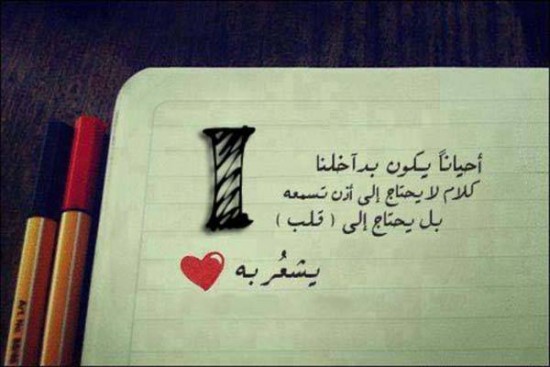 I
أحياناً يكون بدآخلنا
كلام لا يحتاج إلى أذن تسمعه
بل يحتاج إلى ( قلب )
يشعُر به